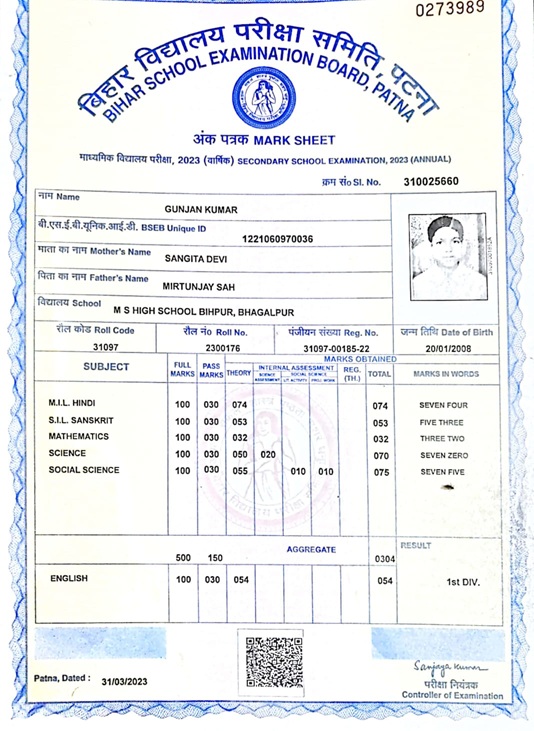 0273989
बिहार विद्यालय परीक्षा समिति, पटना
BIHAR SCHOOL EXAMINATION BOARD, PATNA
अंक पत्रक MARK SHEET
माध्यमिक विद्यालय परीक्षा, 2023 (वार्षिक) SECONDARY SCHOOL EXAMINATION, 2023 (ANNUAL)
क्रम सं० Sl. No. 310025660
नाम Name
GUNJAN KUMAR
बी.एस.ई.बी.यूनिक.आई.डी. BSEB Unique ID
1221060970036
माता का नाम Mother's Name
SANGITA DEVI
पिता का नाम Father's Name
MIRTUNJAY SAH
विद्यालय School
M S HIGH SCHOOL BIHPUR, BHAGALPUR
रौल कोड Roll Code रौल नं० Roll No. पंजीयन संख्या Reg. No. जन्म तिथि Date of Birth
31097 2300176 31097-00185-22 20/01/2008
MARKS OBTAINED
SUBJECT FULL MARKS PASS MARKS THEORY INTERNAL ASSESSMENT REG. (TH.) TOTAL MARKS IN WORDS
SCIENCE ASSESSMENT SOCIAL SCIENCE LIT ACTIVITY PROJ. WORK
M.I.L. HINDI 100 030 074 074 SEVEN FOUR
S.I.L. SANSKRIT 100 030 053 053 FIVE THREE
MATHEMATICS 100 030 032 032 THREE TWO
SCIENCE 100 030 050 020 070 SEVEN ZERO
SOCIAL SCIENCE 100 030 055 010 010 075 SEVEN FIVE
AGGREGATE RESULT
500 150 0304
ENGLISH 100 030 054 054 1st DIV.
Sanjaya Kumar
Patna, Dated : 31/03/2023
परीक्षा नियंत्रक
Controller of Examination